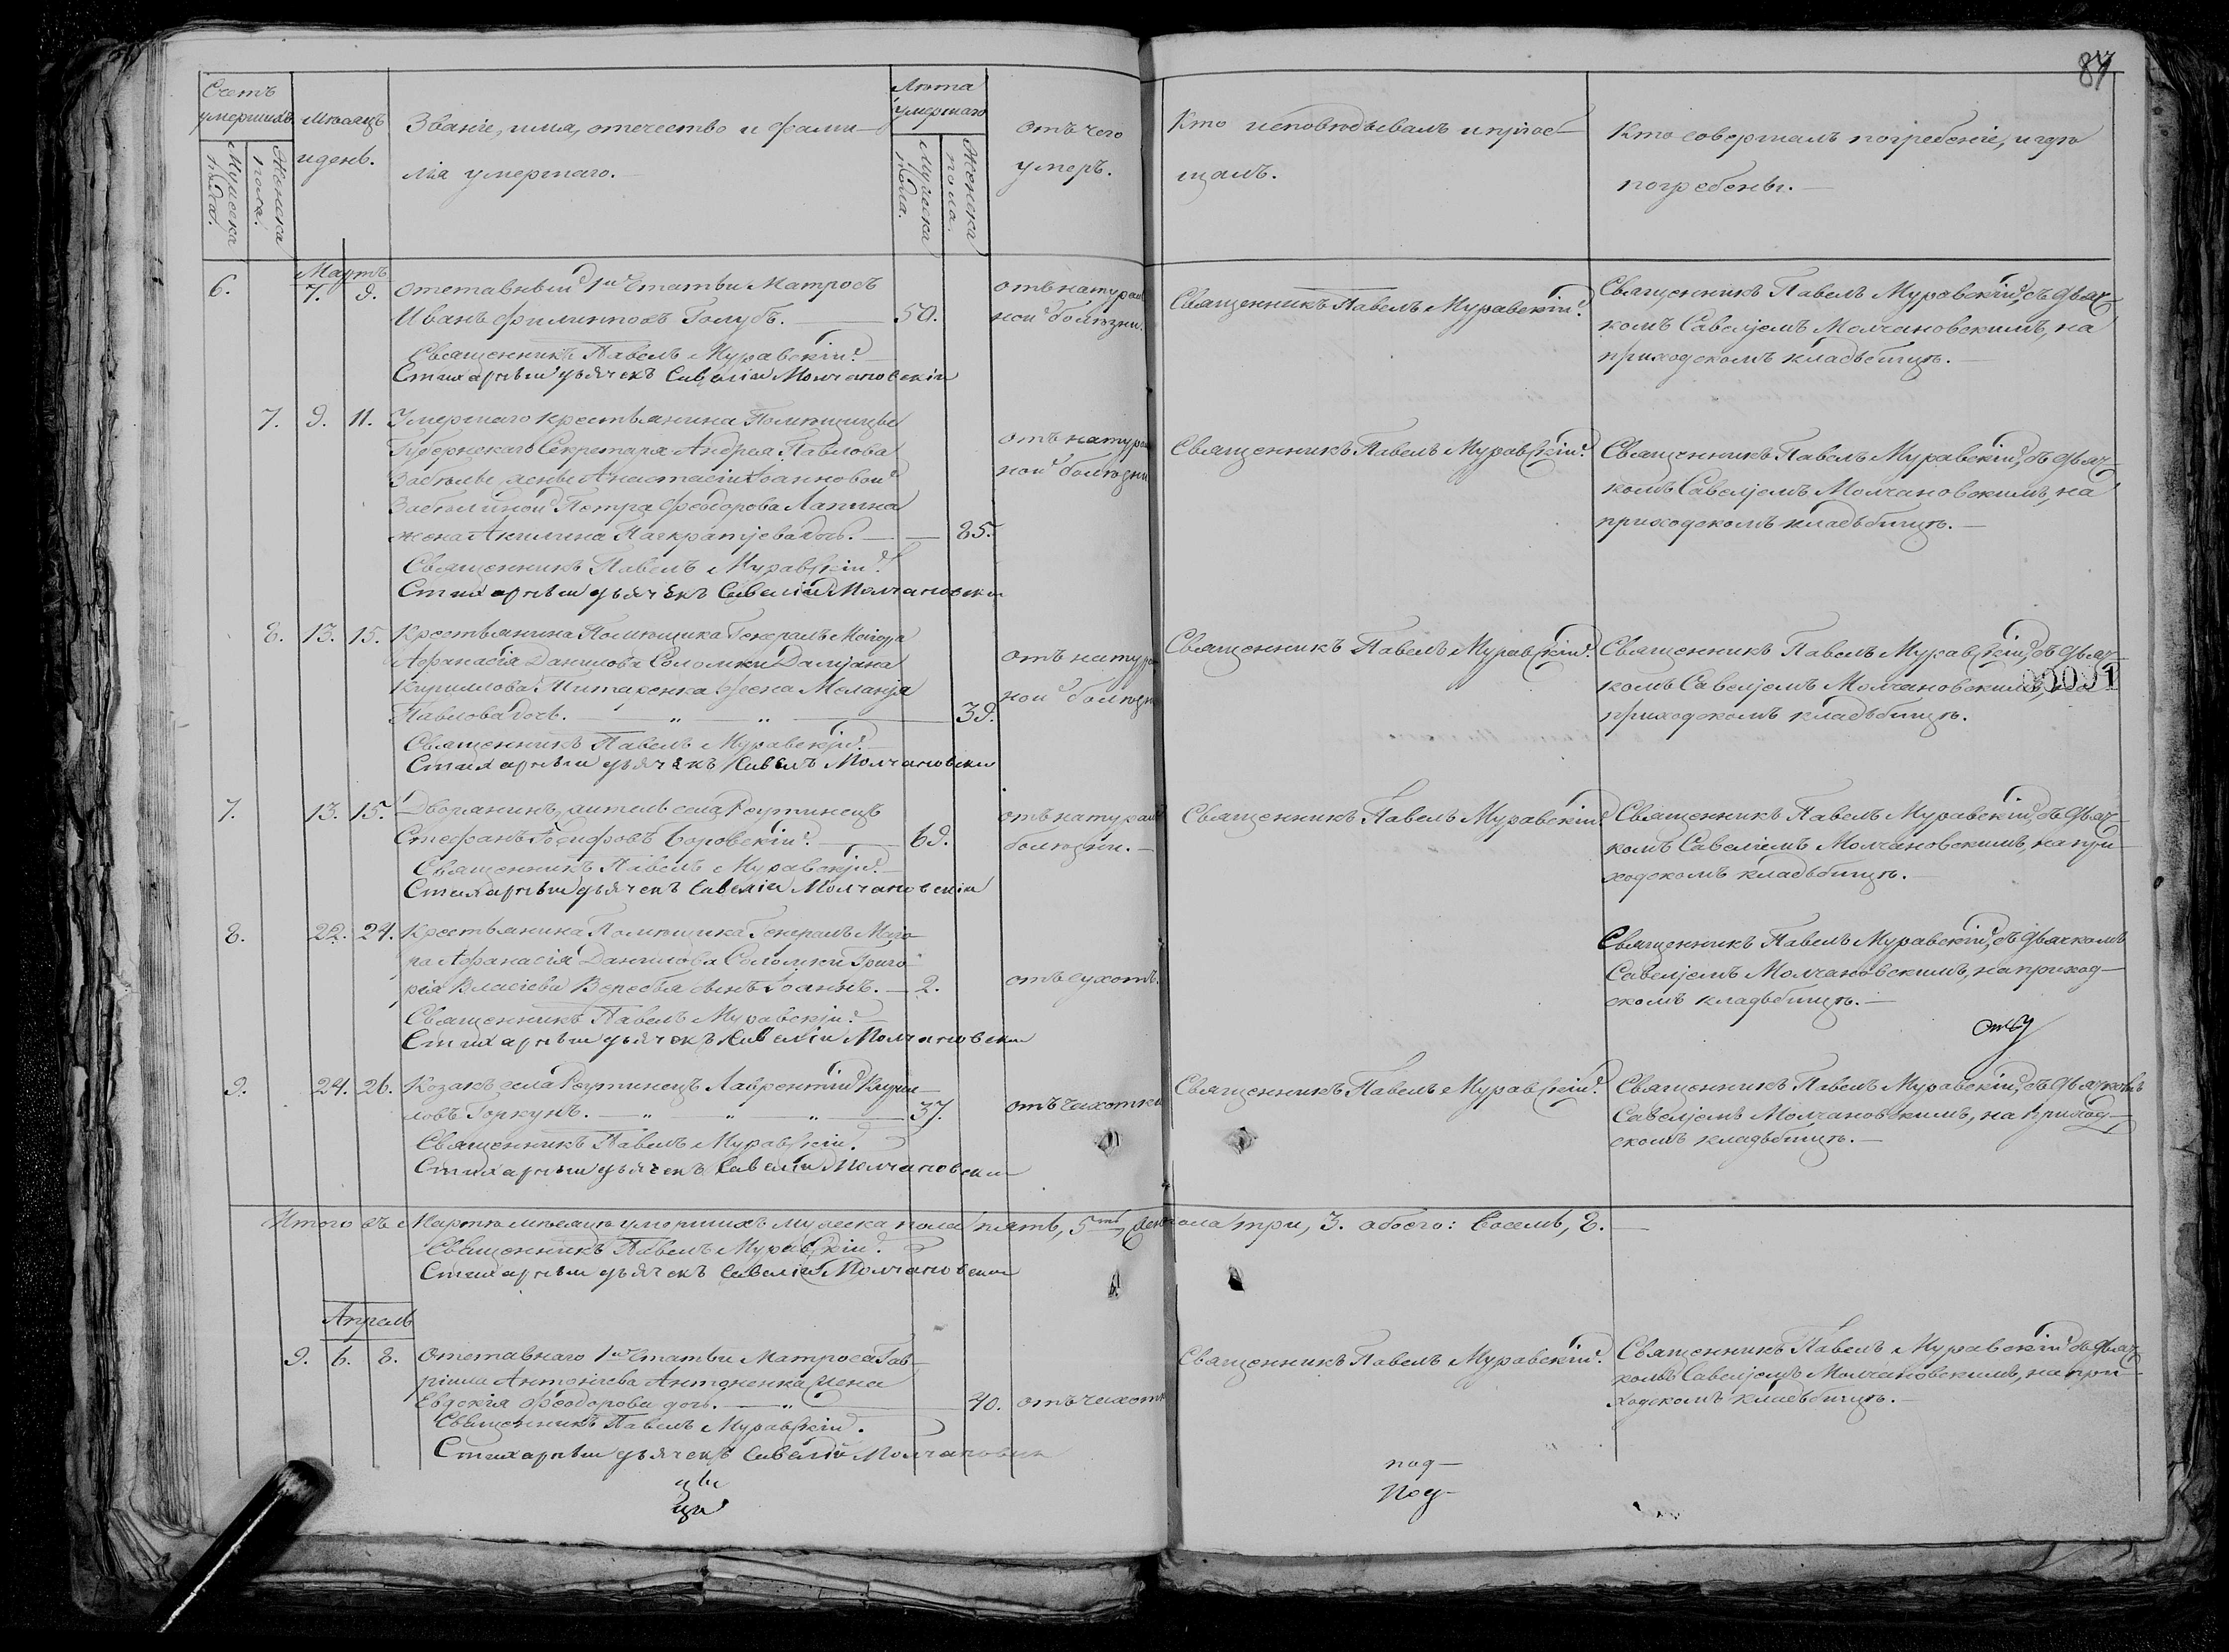 87
Счетъ умершихъ
Мужеска пола.
Женска пола.
Мѣсяцъ и день.
Званіе, имя, отечество и фами-
лія умершаго.
Лѣта умершаго
Мужеска пола.
Женска пола.
Отъ чего умеръ.
Кто исповѣдывалъ и пріоб-
щалъ.
Кто совершалъ погребеніе, и гдѣ
погребены.
Мартъ
6. 7. 9. Отставный 1й Статьи Матросъ
Иванъ Филипповъ Голубъ. 50.
отъ натураль
ной болѣзни.
Священникъ Павелъ Муравскій.
Священникъ Павелъ Муравскій, съ дьяч-
комъ Савеліемъ Молчановскимъ, на
приходскомъ кладьбищѣ.
Священникъ Павелъ Муравскій.
Стихарный дьячекъ Савелій Молчановскій
7. 9. 11. Умершаго крестьянина Помѣщицы
Губернскаго Секретаря Андрея Павлова
Забѣлы жены Анастасіи Іоанновой
Забѣлиной Петра Федорова Лапина
жена Акилина Панкратіева дочь. 85.
отъ натураль
ной болѣзни
Священникъ Павелъ Муравскій.
Священникъ Павелъ Муравскій, съ дьяч-
комъ Савеліемъ Молчановскимъ, на
приходскомъ кладьбищѣ.
Священникъ Павелъ Муравскій.
Стихарный дьячекъ Савелій Молчановскій
8. 13. 15. Крестьянина Помѣщика Генералъ Маіора
Афанасія Данилова Соломки Даміана
Кириллова Титаренка жена Меланія
Павлова дочь. 39.
отъ натураль
ной болѣзни
Священникъ Павелъ Муравскій.
Священникъ Павелъ Муравскій, съ дьяч-
комъ Савеліемъ Молчановскимъ, на
приходскомъ кладьбищѣ.
Священникъ Павелъ Муравскій.
Стихарный дьячекъ Савелъ Молчановскій
7. 13. 15. Дворянинъ, житель села Реутинецъ
Стефанъ Іосифовъ Боровскій. 69.
отъ натурал
болѣзни.
Священникъ Павелъ Муравскій.
Священникъ Павелъ Муравскій, съ дьяч-
комъ Савеліемъ Молчановскимъ, на при-
ходскомъ кладьбищѣ.
Священникъ Павелъ Муравскій.
Стихарный дьячекъ Савелій Молчановскій
8. 22. 24. Крестьянина Помѣщика Генералъ Маіо-
ра Афанасія Данилова Соломки Григо-
рія Власіева сынъ Іоаннъ. 2.
отъ сухотъ.
Священникъ Павелъ Муравскій, съ дьячкомъ
Савеліемъ Молчановскимъ, на приход-
скомъ кладьбищѣ.
Священникъ Павелъ Муравскій.
Стихарный дьячекъ Савелій Молчановскій
9. 24. 26. Козакъ села Реутинецъ Лаврентій Кирил-
ловъ Горкунъ. 37.
отъ чахотки
Священникъ Павелъ Муравскій.
Священникъ Павелъ Муравскій, съ дьячкомъ
Савеліемъ Молчановскимъ, на приход-
скомъ кладьбищѣ.
Священникъ Павелъ Муравскій.
Стихарный дьячекъ Савелій Молчановскій
Итого въ Мартѣ мѣсяцѣ умершихъ мужеска пола пять, 5ть, жен пола три, 3. обоего: восемь, 8.
Священникъ Павелъ Муравскій.
Стихарный дьячекъ Савелій Молчановскій
Апрель
9. 6. 8. Отставнаго 1й Статьи Матроса Гав-
ріила Антоніева Антоненка жена
Евдокія Феодорова дочь. 40.
отъ чахотк
Священникъ Павелъ Муравскій.
Священникъ Павелъ Муравскій съ дьяч-
комъ Савеліемъ Молчановскимъ, на при-
ходскомъ кладьбищѣ.
Священникъ Павелъ Муравскій.
Стихарный дьячекъ Савелій Молчановск
под-
Под-